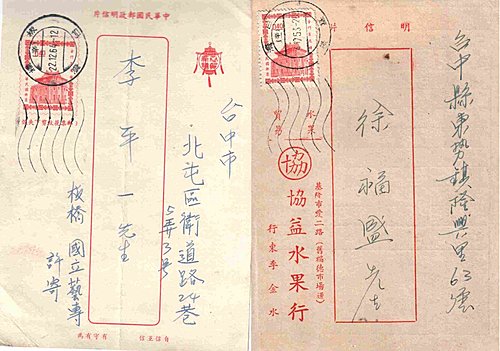 中華民國郵政明信片
台中市
北屯區衛道路24巷
5弄3号
李平一先生
板橋 國立藝專
許寄
有守有為
自信互信
明信片
台中縣東勢鎮隆興里63號
徐福盛先生
水果
貿易
協
協益水果行
基隆市愛二路(舊福德市場邊)
行東季金水